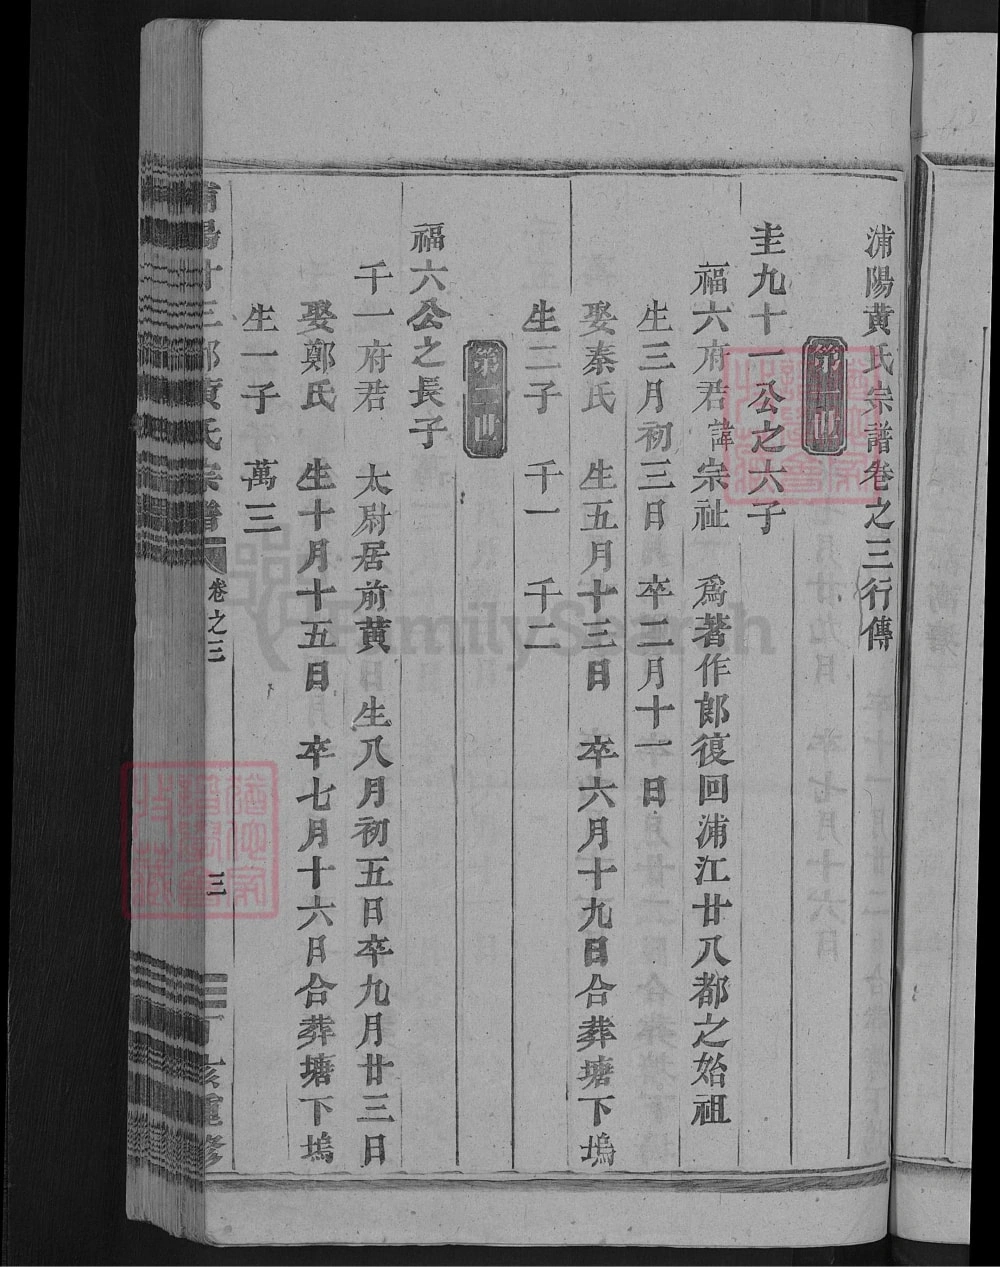 浦陽黄氏宗譜卷之三行傳
圭九十一公之六子
福六府君諱宗祉 爲著作郎復回浦江廿八都之始祖
生三月初三日 卒二月十一日
娶秦氏 生五月十三日 卒六月十九日合葬塘下塢
生二子 千一 千二
福六公之長子
千一府君 太尉居前黄 生八月初五日卒九月廿三日
娶鄭氏 生十月十五日 卒七月十六日合葬塘下塢
生一子 萬三
黄氏宗譜 卷之三 三 丁亥重修
FamilySearch